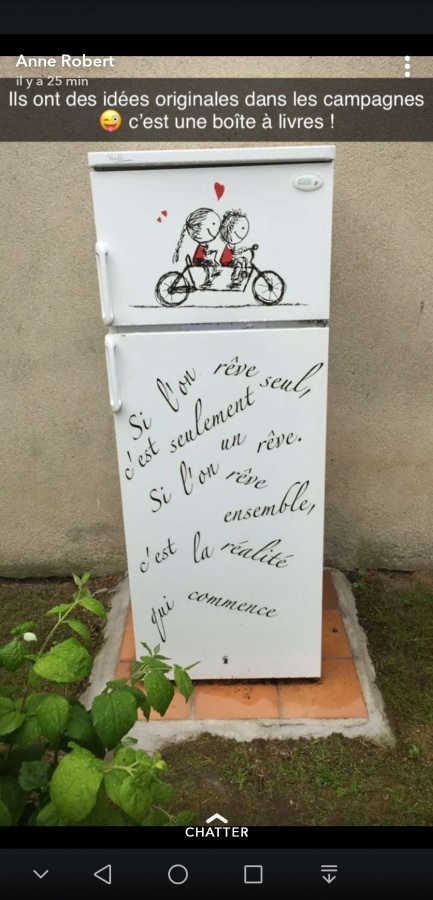 Anne Robert
il y a 25 min
Ils ont des idées originales dans les campagnes
😜 c'est une boîte à livres !
Si l'on rêve seul,
c'est seulement un rêve.
Si l'on rêve
ensemble,
c'est la réalité
qui commence
CHATTER